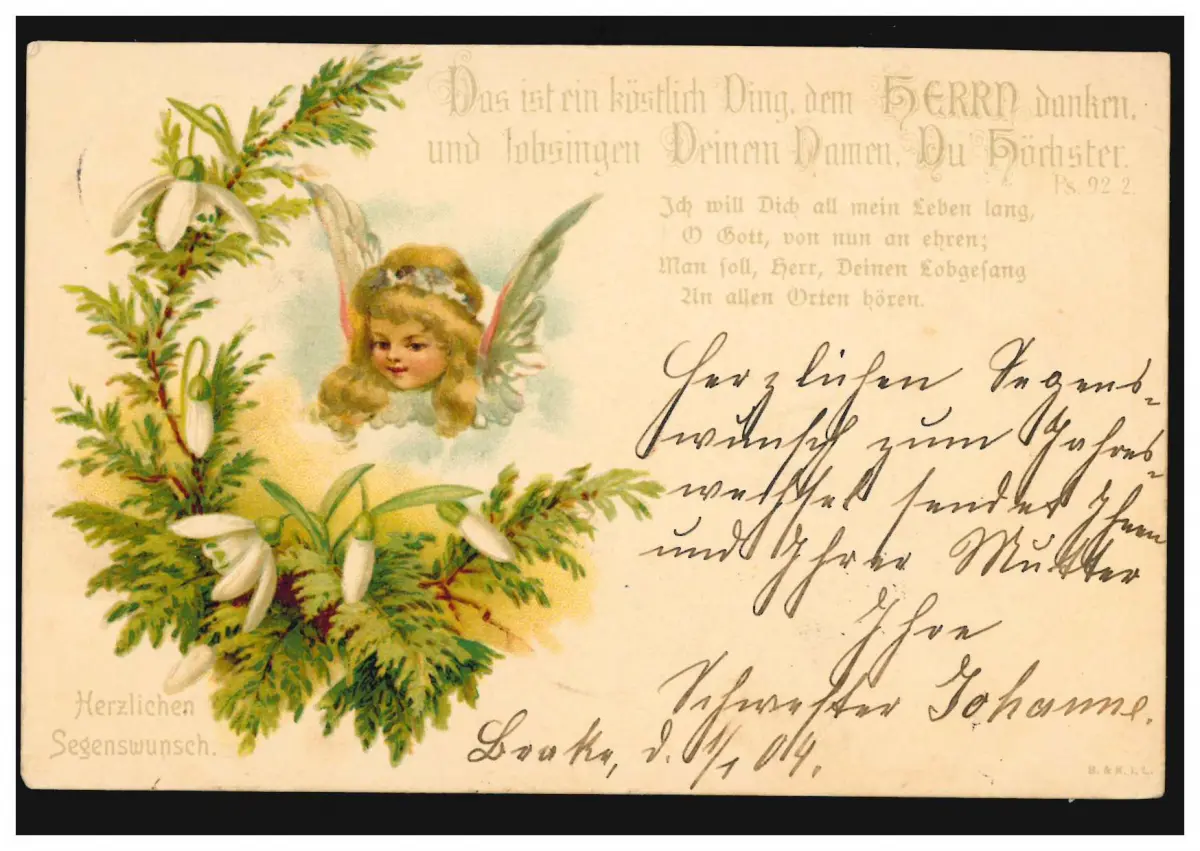 Das ist ein köstlich Ding, dem HERRN danken,
und lobsingen Deinem Namen, Du Höchster.
Ps. 92 2.
Ich will Dich all mein Leben lang,
O Gott, von nun an ehren;
Man soll, Herr, Deinen Lobgesang
An allen Orten hören.
Herzlichen Segens-
wunsch zum Jahres-
wechsel sendet Ihnen
und Ihrer Mutter
Ihre
Schwester Johanne.
Brake, d. 1/1 04.
Herzlichen
Segenswunsch.
B. & K. i. L.